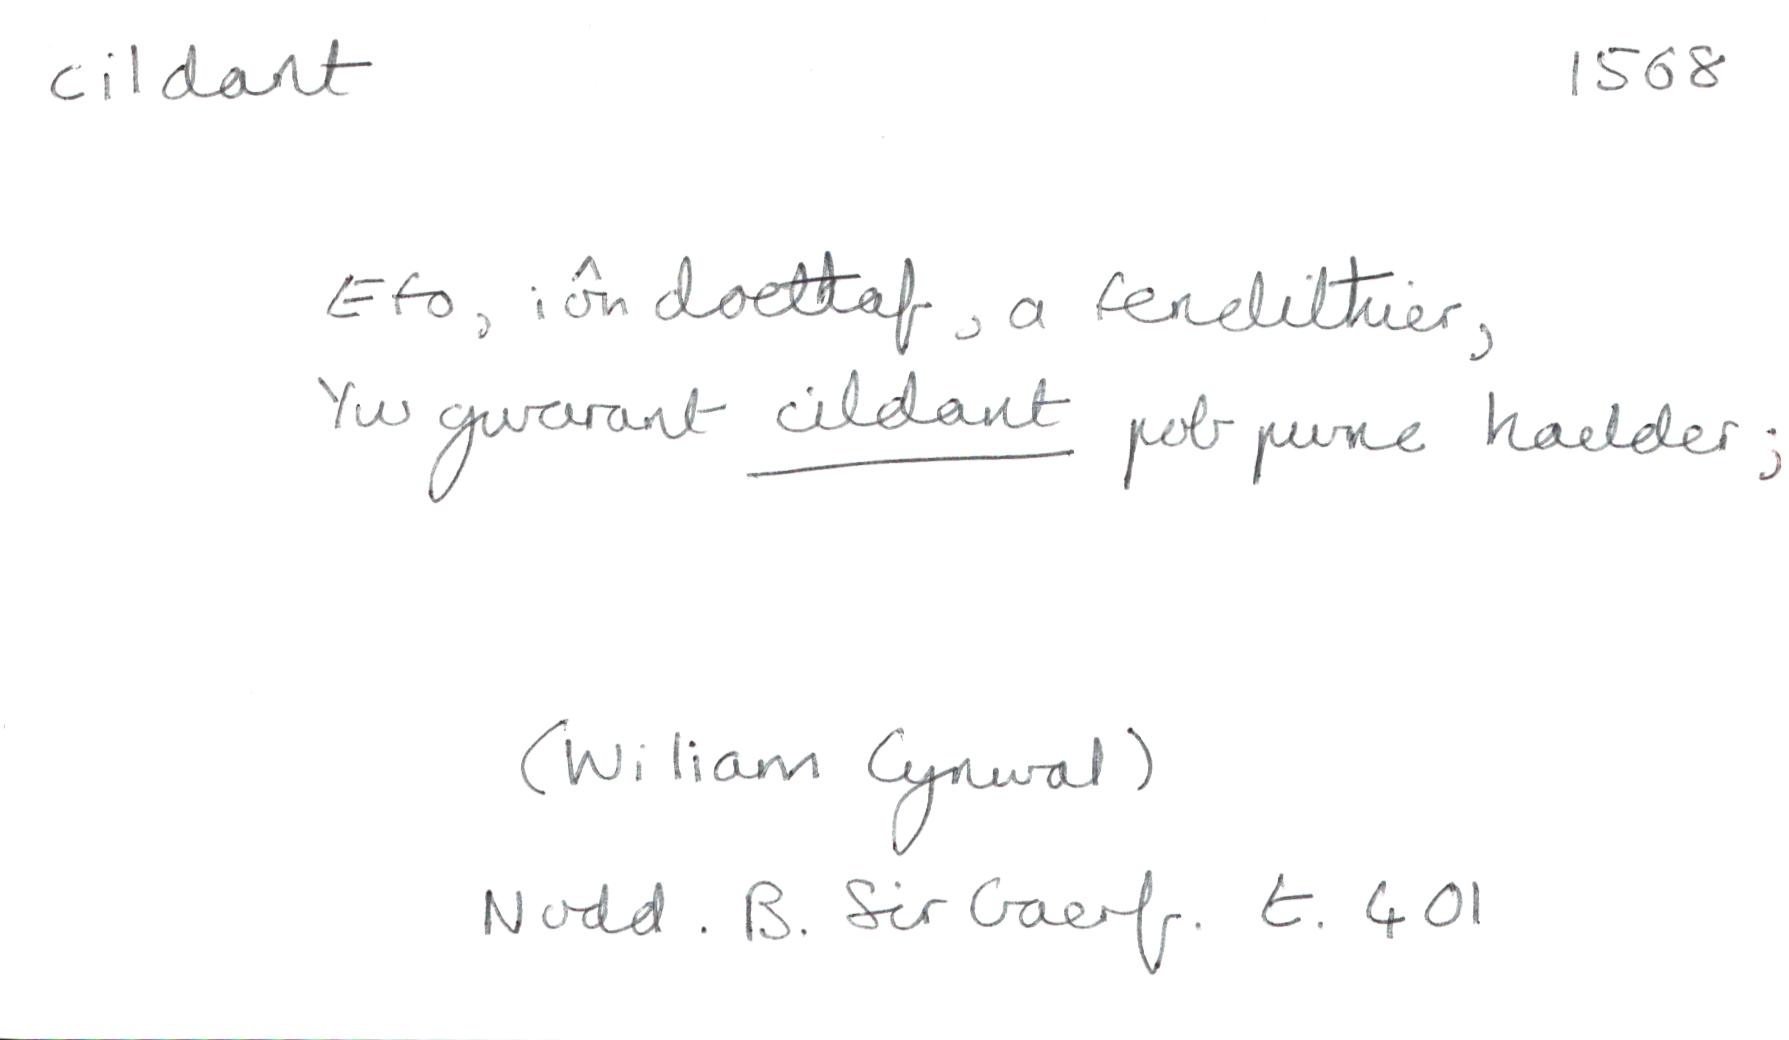 cildant 1568
Efo, iôn doettaf, a fendithier,
Yw gwarant cildant pob pwnc haelder;
(Wiliam Cynwal)
Nodd. B. Sir Gaerf. t. 401